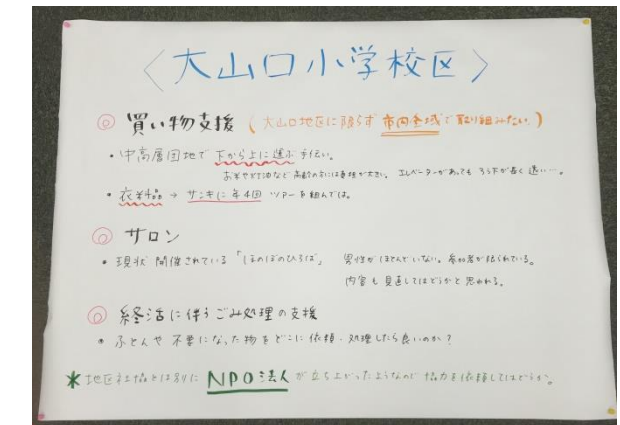 〈大山口小学校区〉
◎ 買い物支援（大山口地区に限らず市内全域で取り組みたい。）
・中高層団地で下から上に運ぶ手伝い。
お米やお油など高齢の方には負担が大きい。エレベーターがあってもろう下が長く遠い…。
・衣料品→サンキに年4回ツアーを組んでは。
◎ サロン
・現状開催されている「ほのぼのひろば」 男性がほとんどいない。参加者が限られている。
内容も見直してはどうかと思われる。
◎ 終活に伴うごみ処理の支援
・ふとんや不要になった物をどこに依頼・処理したら良いのか？
＊地区社協とは別にNPO法人が立ち上がったようなので協力を依頼してはどうか。